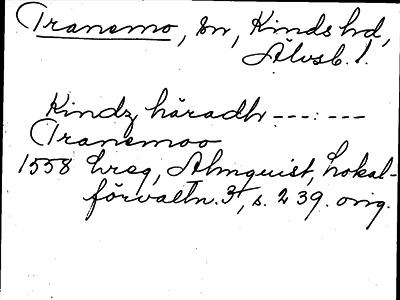 Tranemo, sn, Kinds hd,
Älvsb. l.
Kindz häradh ---:---
Tranemoo
1558 hreg, Almquist, Lokal-
förvaltn. 3, s. 239. orig.